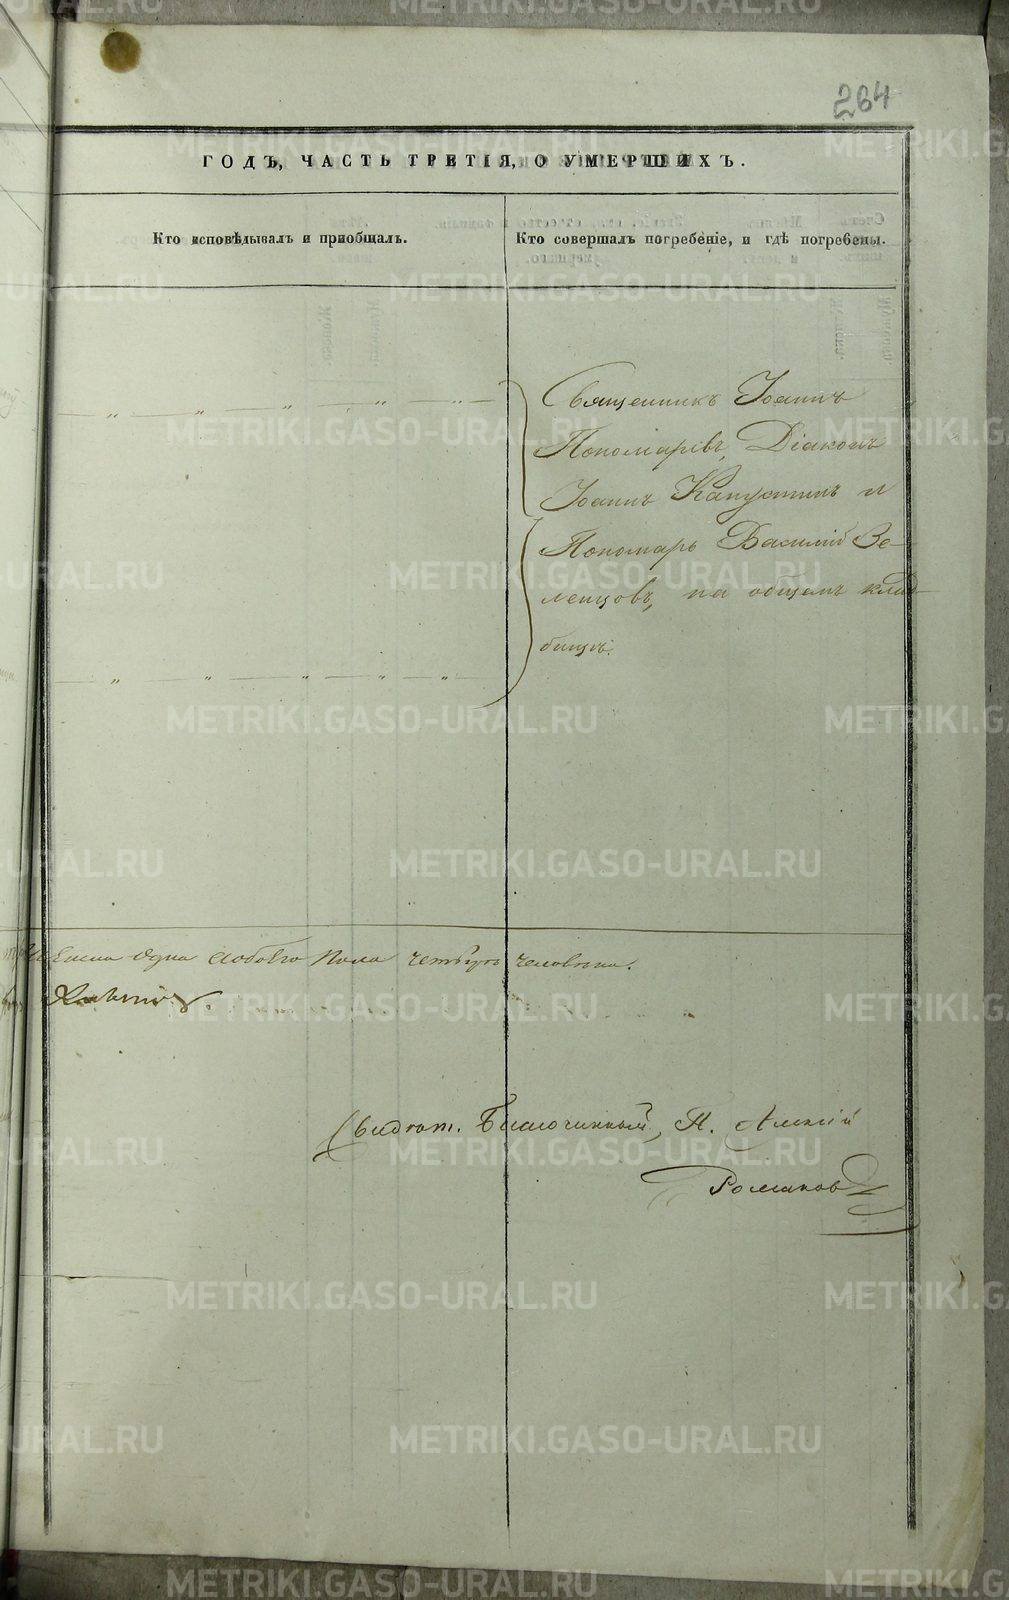 264
ГОДЪ, ЧАСТЬ ТРЕТІЯ, О УМЕРШИХЪ.
Кто исповѣдывалъ и пріобщалъ.
Кто совершалъ погребеніе, и гдѣ погребены.
Священникъ Іоаннъ
Пономаревъ, Діаконъ
Іоаннъ Капустинъ и
Пономарь Василій Зе-
ленцовъ, на общемъ клад-
бищѣ.
одна обоего пола четыре человѣка.
Благочинный, П. Алексій
Романовъ
METRIKI.GASO-URAL.RU